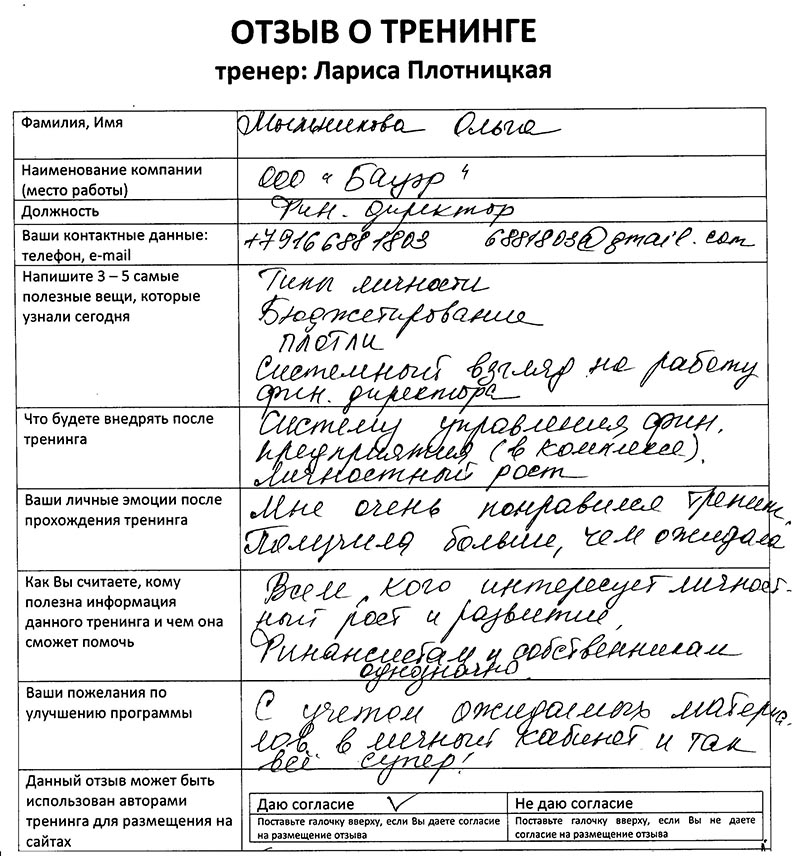 ОТЗЫВ О ТРЕНИНГЕ
тренер: Лариса Плотницкая
Фамилия, Имя
Мыльникова Ольга
Наименование компании
(место работы)
ООО "Бауэр"
Должность
Фин. директор
Ваши контактные данные:
телефон, e-mail
+79166881803 6881803@gmail.com
Напишите 3 – 5 самые
полезные вещи, которые
узнали сегодня
Типы личности
Бюджетирование
ПЛОТЛИ
Системный взгляд на работу
фин. директора
Что будете внедрять после
тренинга
Систему управления фин.
предприятия (в комплексе).
Личностный рост
Ваши личные эмоции после
прохождения тренинга
Мне очень понравился тренинг.
Получила больше, чем ожидала
Как Вы считаете, кому
полезна информация
данного тренинга и чем она
сможет помочь
Всем, кого интересует личност-
ный рост и развитие,
Финансистам и собственникам
однозначно
Ваши пожелания по
улучшению программы
С учетом ожидаемых материа-
лов в личный кабинет и так
всё супер!
Данный отзыв может быть
использован авторами
тренинга для размещения на
сайтах
Даю согласие ✓
Поставьте галочку вверху, если Вы даете согласие
на размещение отзыва
Не даю согласие
Поставьте галочку вверху, если Вы не даете
согласие на размещение отзыва